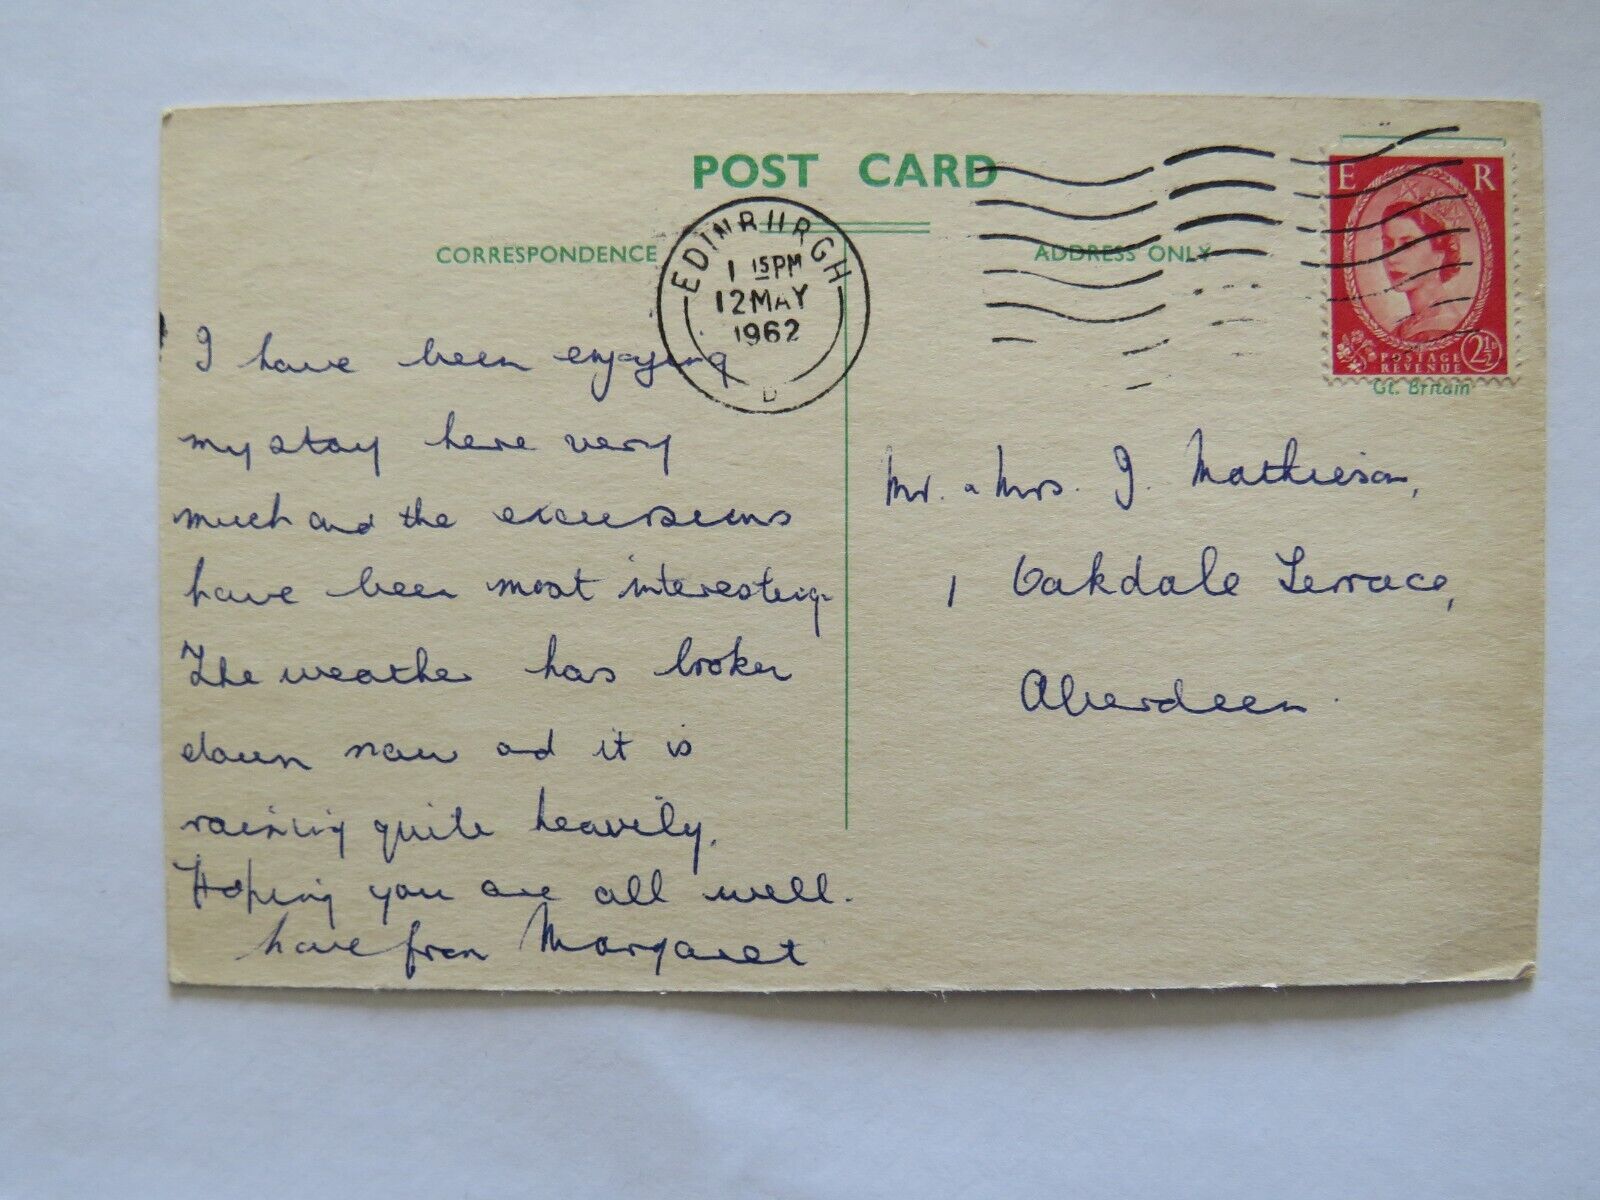 POST CARD
CORRESPONDENCE
ADDRESS ONLY
EDINBURGH
1 15 PM
12 MAY
1962
E R
POSTAGE
REVENUE
2½
Gt. Britain
I have been enjoying
my stay here very
much and the excursions
have been most interesting.
The weather has broken
down now and it is
raining quite heavily.
Hoping you are all well.
love from Margaret
Mr. & Mrs. J. Mathieson,
1 Oakdale Terrace,
Aberdeen.